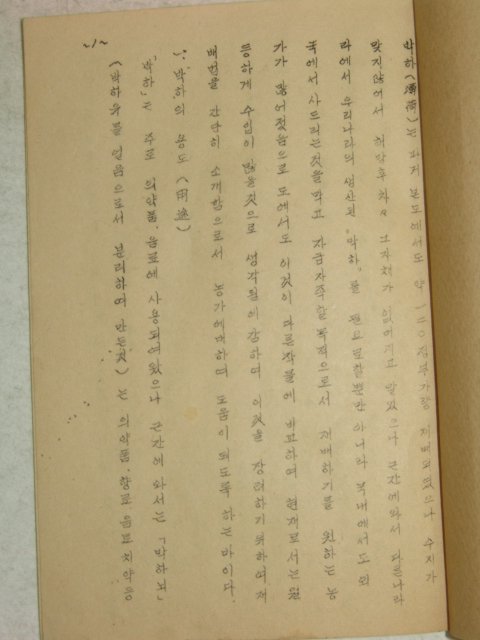 박하(薄荷)는 과거 본도에서도 약 100정부가량 재배되였으나 수지가
맞지않어서 해방후차々 그자체가 없어지고 말았으나 근간에와서 다른나라
라에서 우리나라의 생산된 "박하"를 필요로할뿐만 아니라 국내에서도 외
국에서 사드리는것을막고 자급자족할목적으로서 재배하기를 원하는 농
가가 많어젔음으로 도에서도 이것이 다른작물에 비교하여 현재로서는월
등하게 수입이 많을것으로 생각됨에감하여 이것을 장려하기위하여재
배법을 간단히 소개함으로서 농가에대하여 도움이 되도록 하는바이다.
∴ 박하의 용도(用途)
"박하"는 주로 의약품.음료에 사용되여왔으나 근간에 와서는「박하뇌」
(박하유를 얻음으로서 분리하여 만든것)는 의약품.향료.음료치약등
~1~